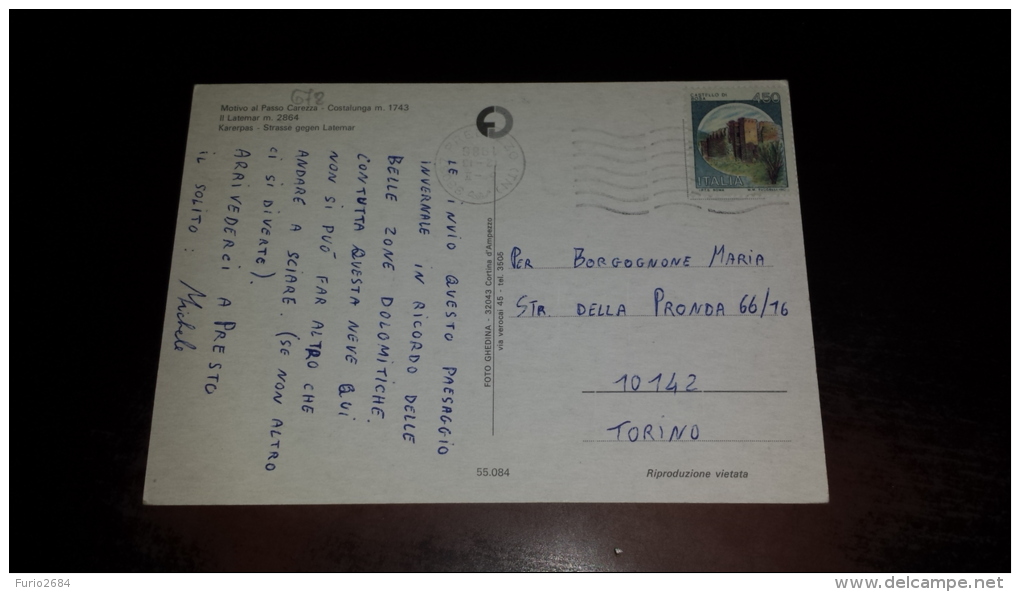 Motivo al Passo Carezza - Costalunga m. 1743
Il Latemar m. 2864
Karerpas - Strasse gegen Latemar
678
LE INVIO QUESTO PAESAGGIO
INVERNALE IN RICORDO DELLE
BELLE ZONE DOLOMITICHE.
CONTUTTA QUESTA NEVE QUI
NON SI PUÒ FAR ALTRO CHE
ANDARE A SCIARE. (SE NON ALTRO
CI SI DIVERTE).
ARRIVEDERCI A PRESTO
IL SOLITO:
Michele
FOTO GHEDINA - 32043 Cortina d'Ampezzo
via verocai 45 - tel. 3506
CASTELLO DI
450
ITALIA
PER BORGOGNONE MARIA
STR. DELLA PRONDA 66/16
10142
TORINO
55.084
Riproduzione vietata
Furio2684
www.delcampe.net